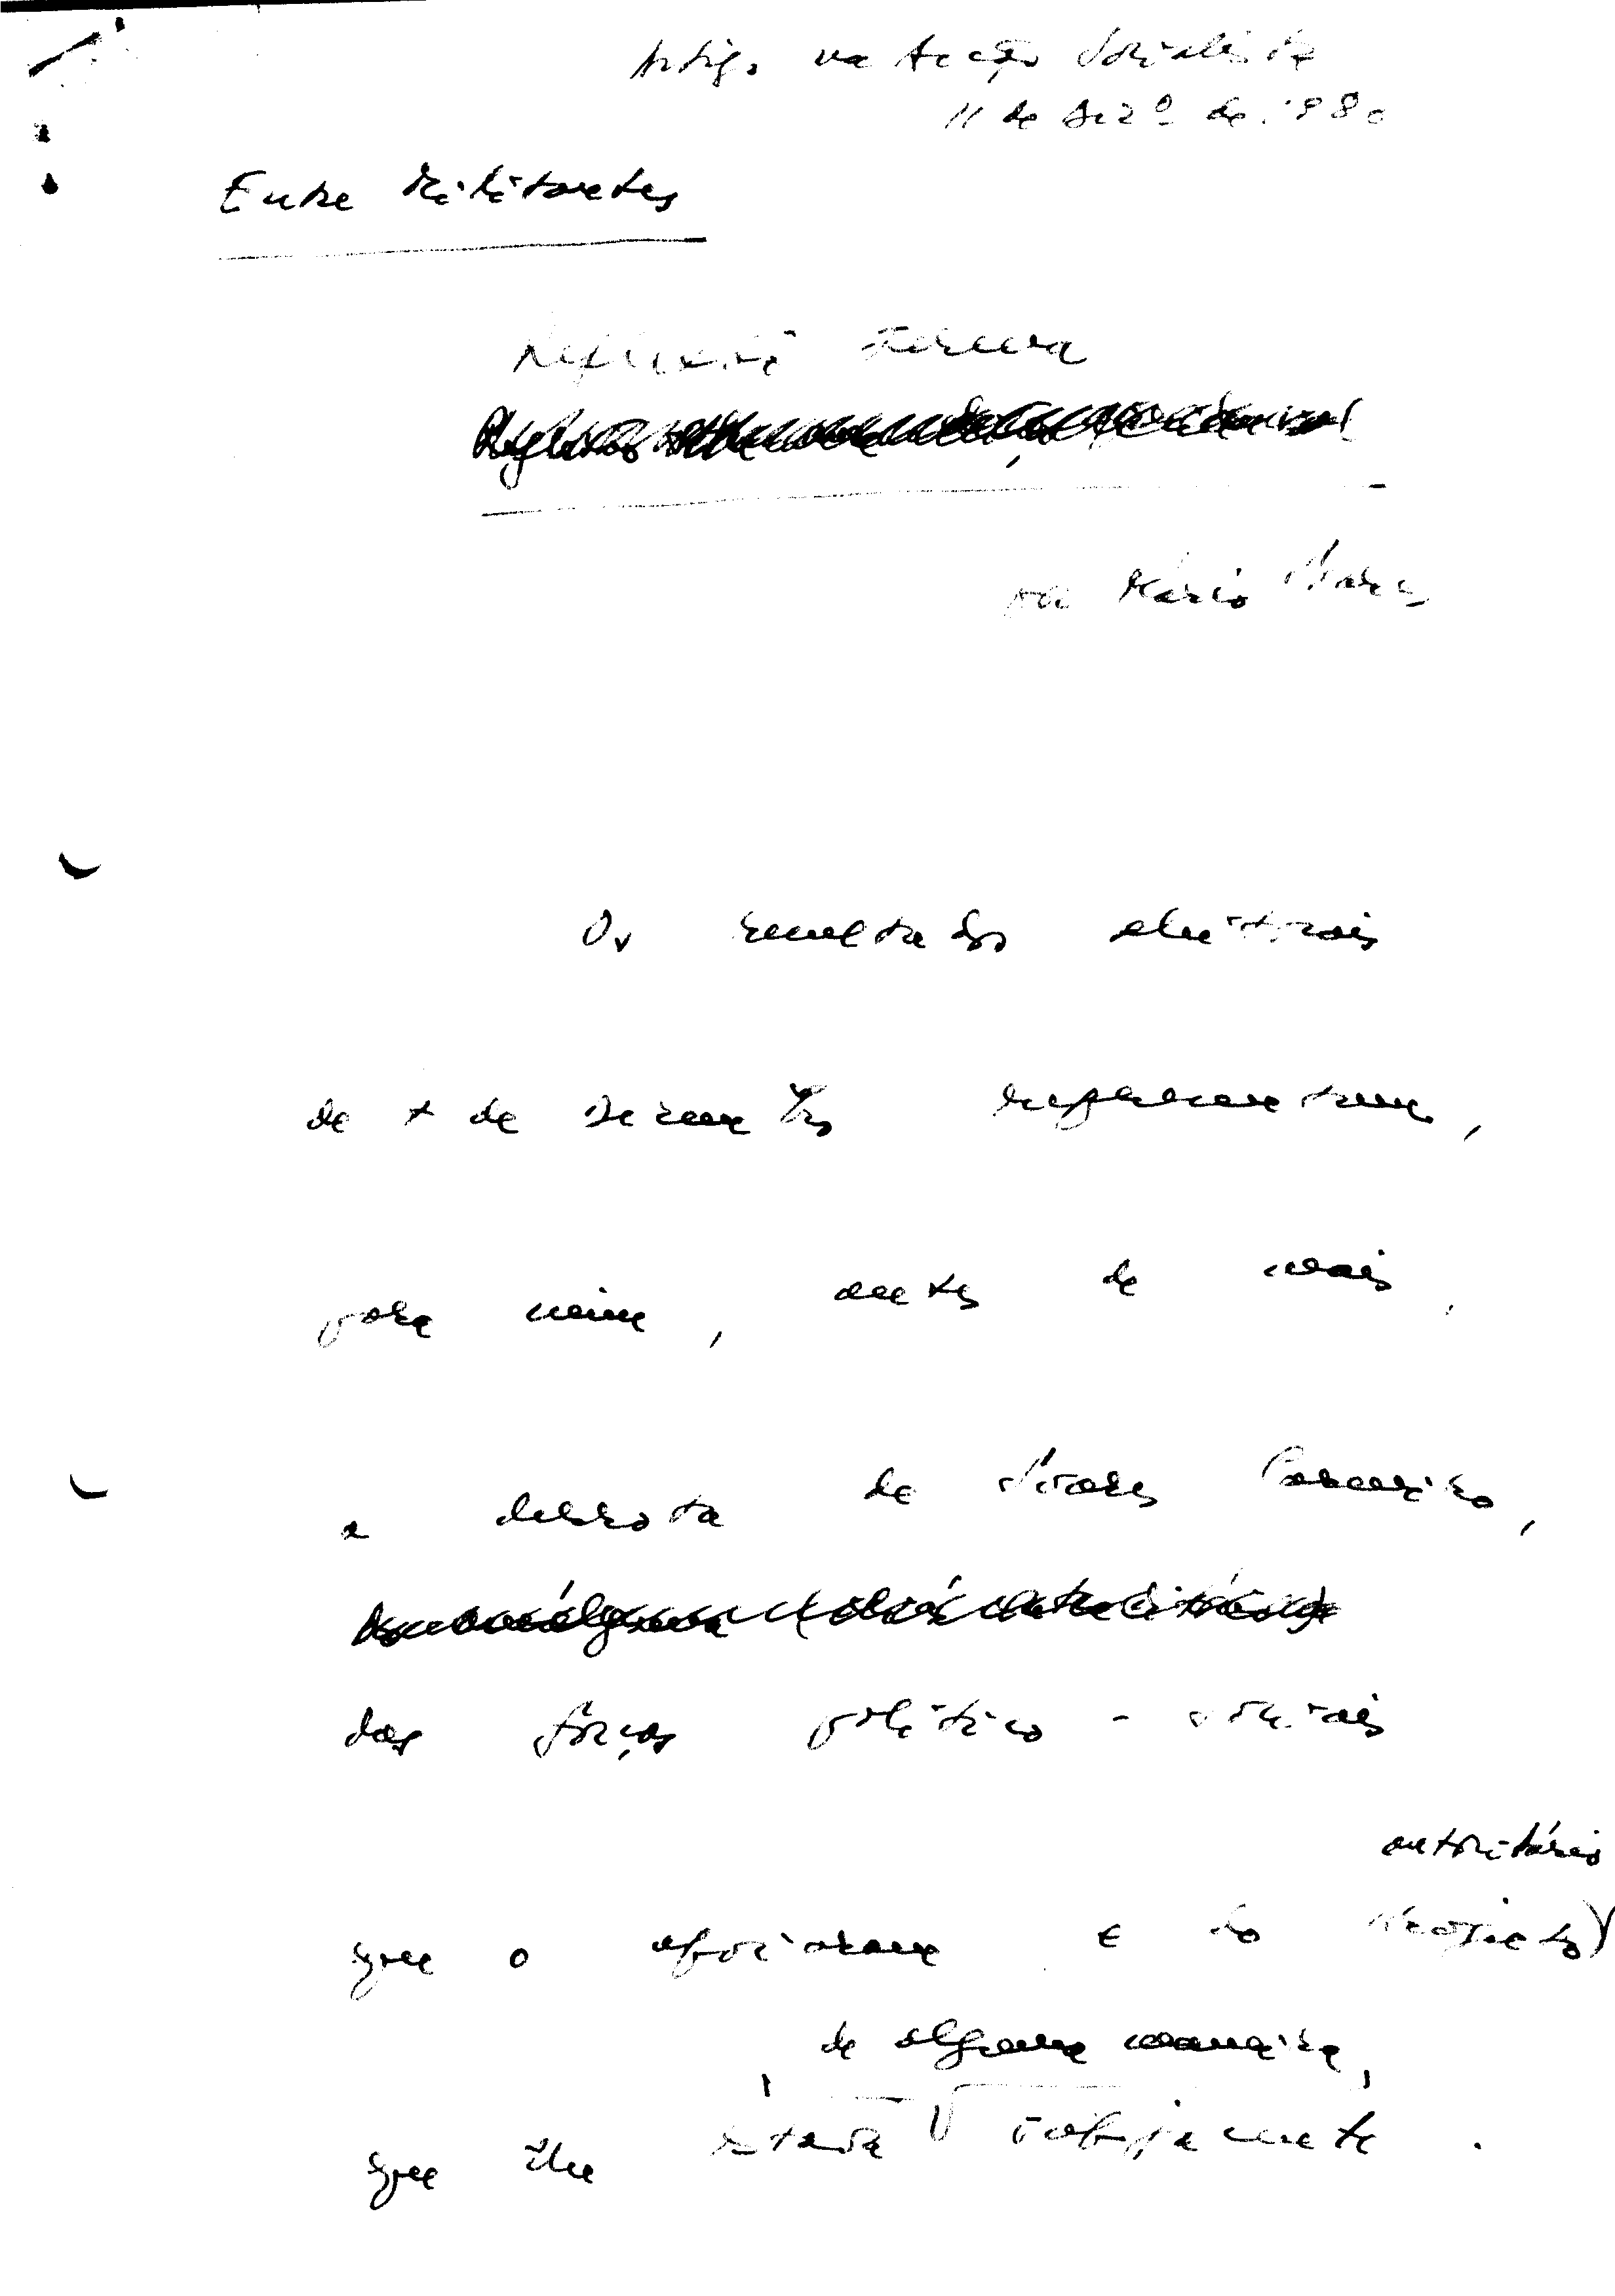 Artigo na Acção Socialista
11 de Dezº de 1980
Entre Militantes
Reflexão serena
por Mário Soares
Os resultados eleitorais
de 7 de Dezembro representam,
para mim, antes de mais,
a derrota de Soares Carneiro,
das forças político-sociais
autoritário
que o apoiaram e do projecto
de alguma maneira,
que lhe estava subjacente.